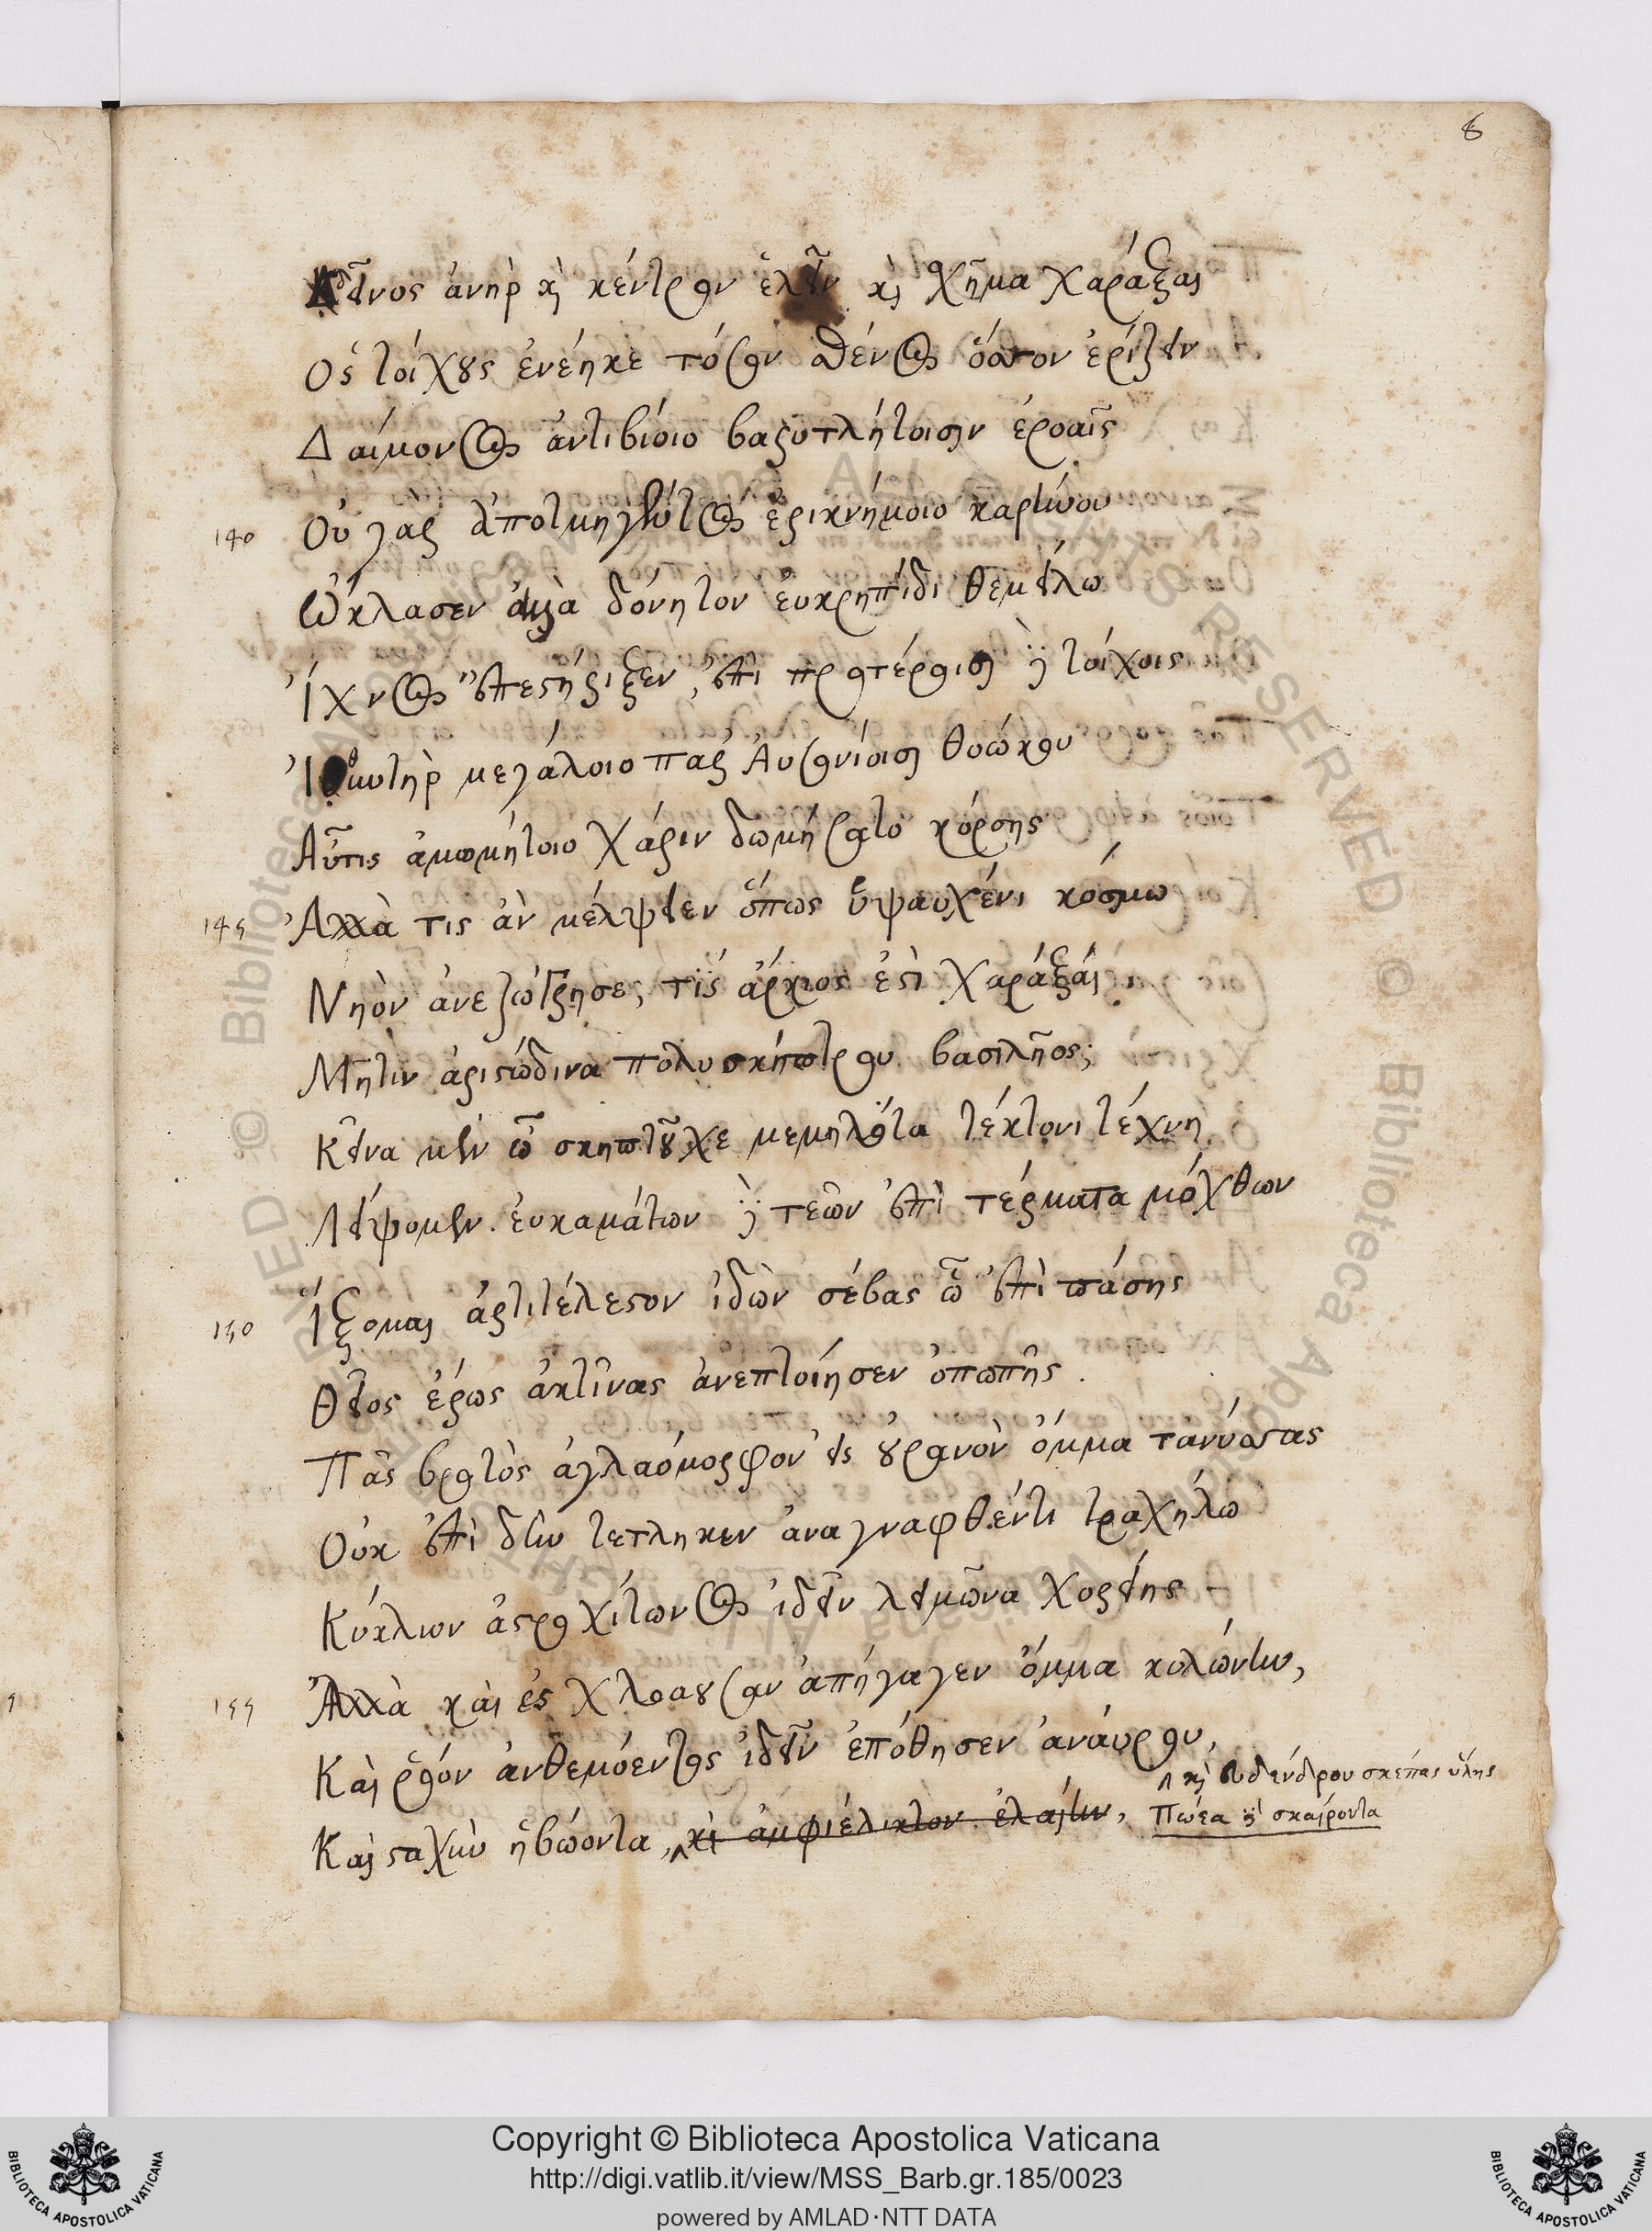 6
Δεῖνος ἀνὴρ κὶ κέντρον ἑλεῖν κὶ σχῆμα χαράξαι
Ος τοίχους ἐνέηκε τόσον σθένος ὅσσον ἐρίζειν
Δαίμονος ἀντιβίοιο βαρυτλήτοισιν ἐροαῖς
140 Οὐ γαρ ἀποτμηγέντος ἐρικνήμοιο καρήνου
Ὤκλασεν ἀλλὰ δόνητον ἐυκρηπίδι θεμείλω
Ἴχνος ἐπεστήριξεν, ἐπὶ προτέροισι δὲ τοίχοις
Ἰθυντὴρ μεγάλοιο παρ Αυσονίοισι θοώκου
Αὖτις ἀμωμήτοιο χάριν δωμήσατο κόρσης
145 Ἀλλὰ τις ἀν μέλψειεν ὅπως ὑψαυχένι κόσμω
Νηὸν ἀνεζώγρησε, τίς ἄρκιος ἐστὶ χαράξαι
Μῆτιν ἀριστώδινα πολυσκήπτρου βασιλῆος;
Κεῖνα μὲν ὦ σκηπτοῦχε μεμηλότα τέκτονι τέχνη
Λείψομεν. ἐυκαμάτων δὲ τεῶν ἐπὶ τέρματα μόχθων
150 Ἵξομαι ἀρτιτέλεστον ἰδὼν σέβας ὧ ἐπὶ πάσης
Θεῖος ἔρως ἀκτῖνας ἀνεπτοίησεν ὀπωπῆς.
Πᾶς βροτὸς ἀγλαόμορφον εἰς οὐρανὸν ὄμμα τανύσσας
Οὐκ ἐπὶ δὴν τετληκεν ἀναγναφθέντι τραχήλω
Κύκλιον ἀστροχίτωνος ἰδεῖν λειμῶνα χορείης
155 Ἀλλὰ καὶ ἐς χλοαουσαν ἀπήγαγεν ὄμμα κολώνην,
Καὶ ῥόον ἀνθεμόεντος ἰδεῖν ἐπόθησεν ἀναύρου,
Και σταχὺν ἡβώοντα, κὶ ἀμφιέλικτον ἐλαίην,
κὶ ευδένδρου σκέπας ὕλης
Πώεα δὲ σκαίροντα
Copyright © Biblioteca Apostolica Vaticana
http://digi.vatlib.it/view/MSS_Barb.gr.185/0023
powered by AMLAD·NTT DATA